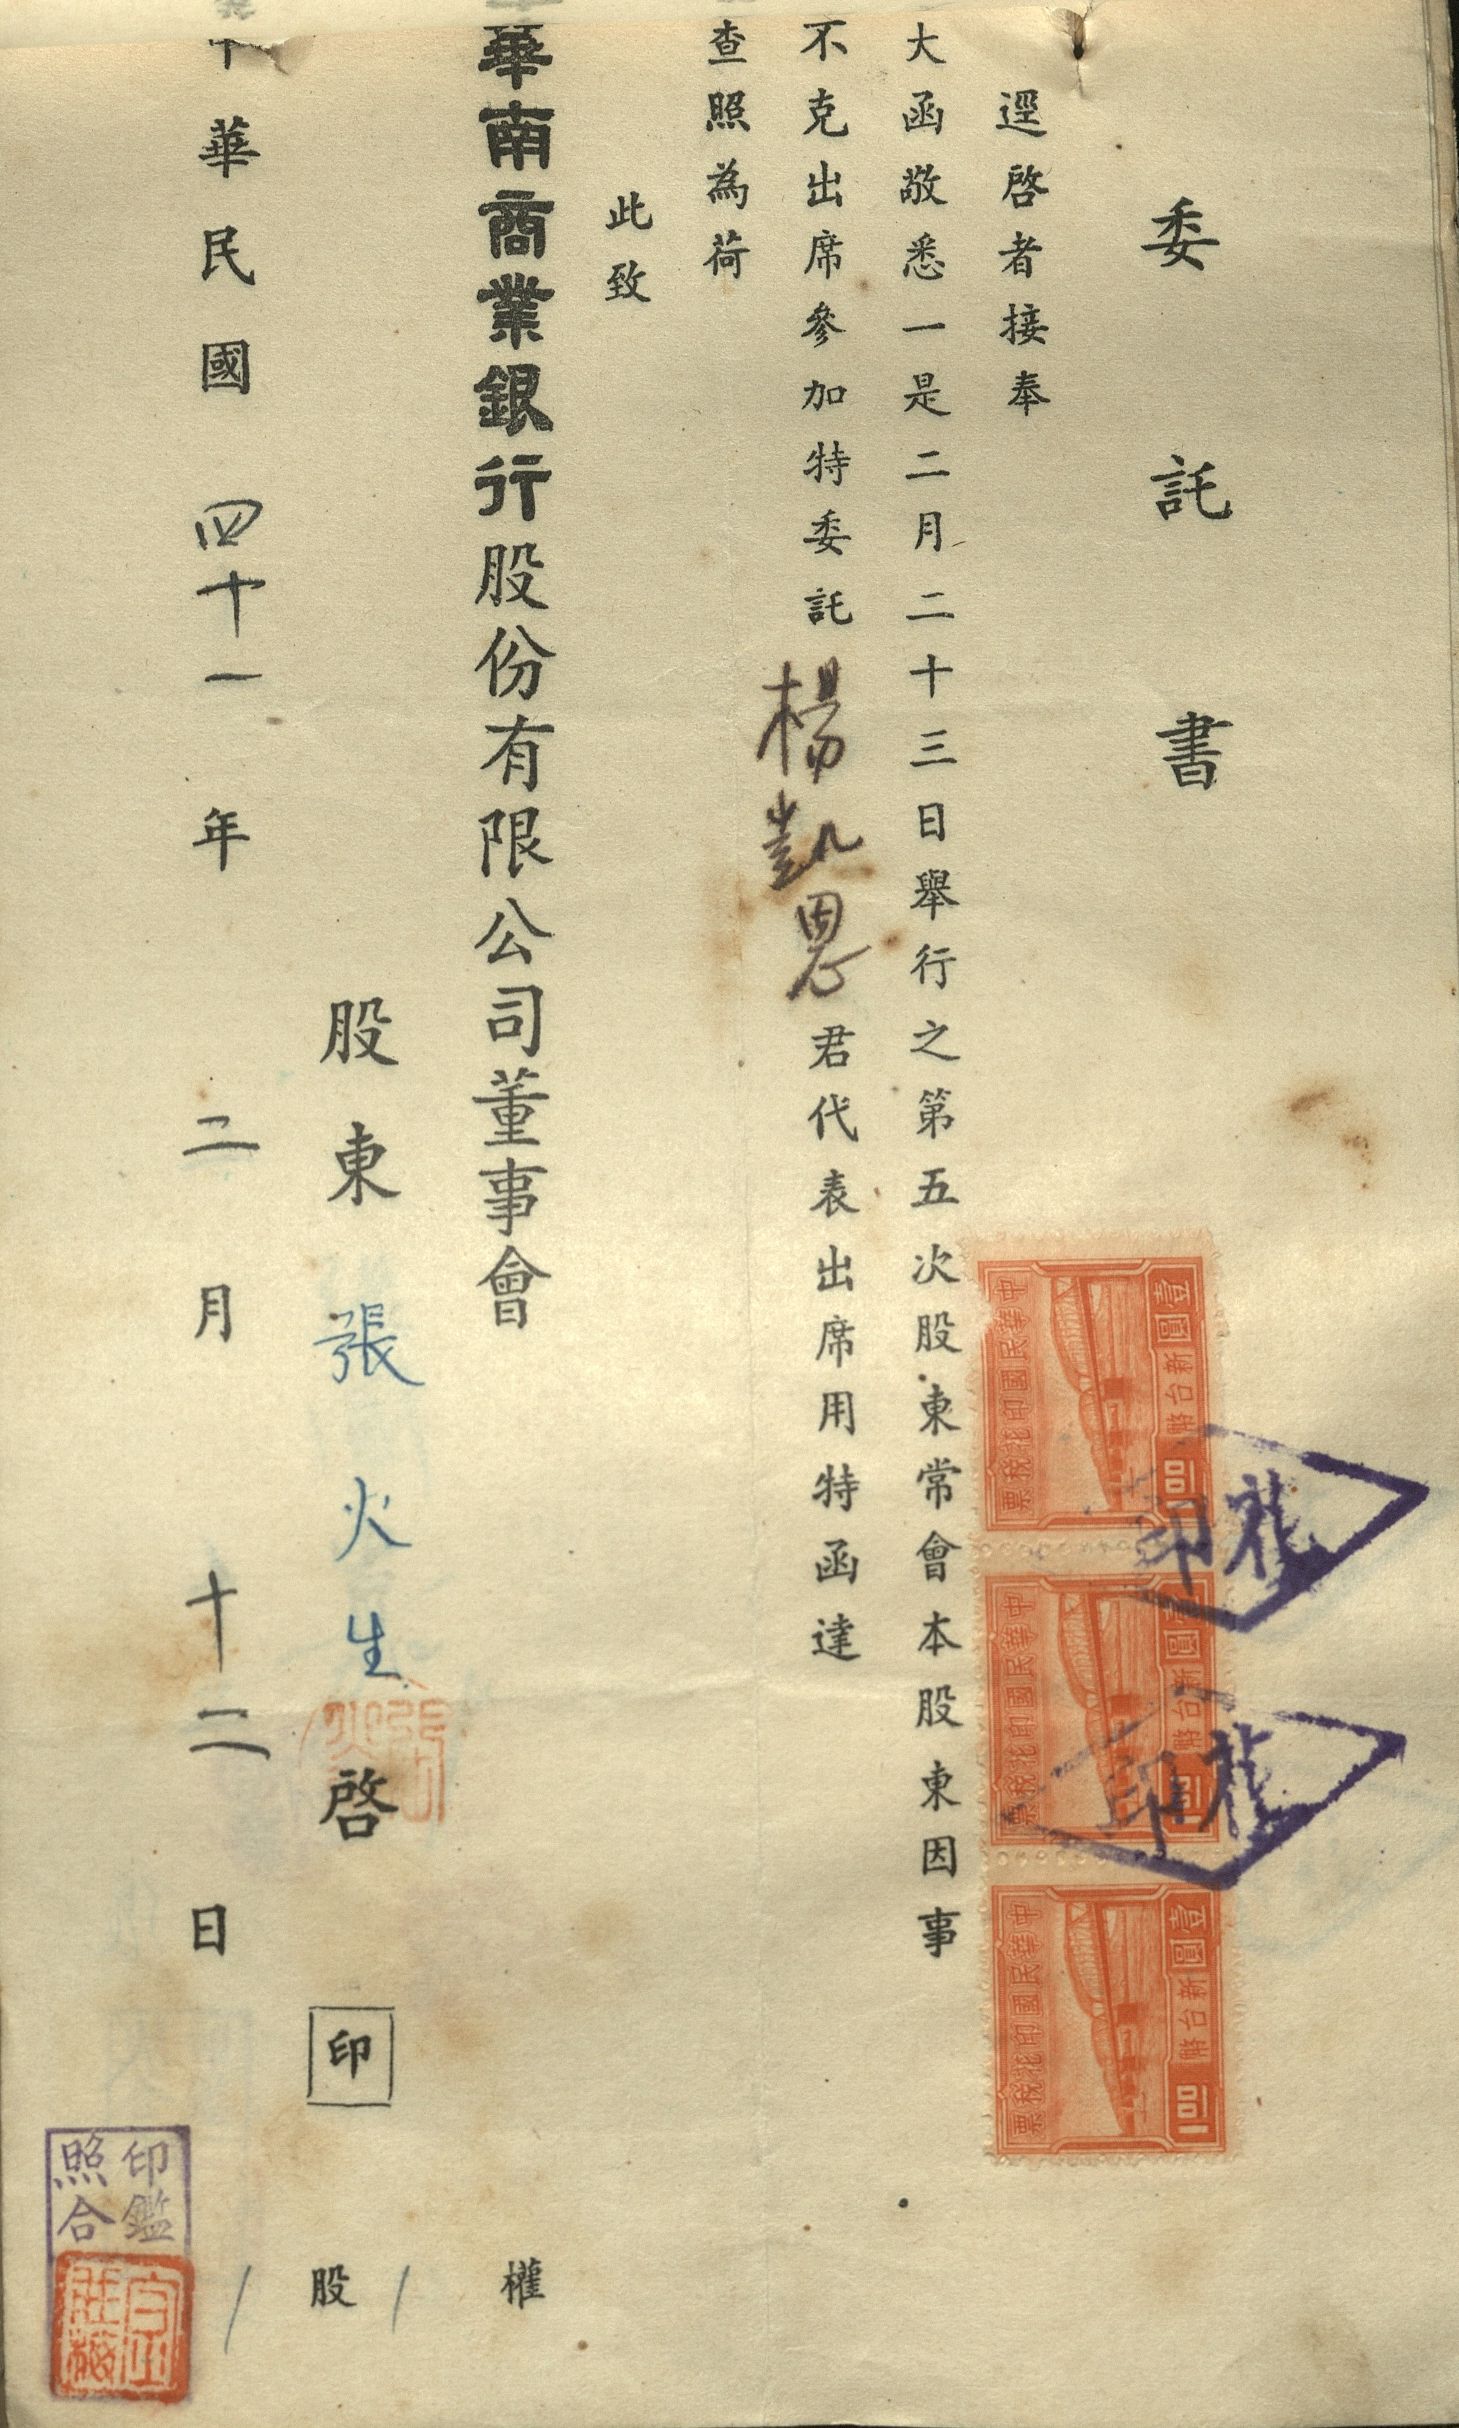 委託書
逕啓者接奉
大函敬悉一是二月二十三日舉行之第五次股東常會本股東因事
不克出席參加特委託楊凱恩君代表出席用特函達
查照為荷
此致
華南商業銀行股份有限公司董事會
股東張火生啓 印
中華民國四十一年二月十二日
權
股
印鑑
照合
中華民國印花稅票
壹圓新台幣
中華民國印花稅票
壹圓新台幣
中華民國印花稅票
壹圓新台幣
印花
印花